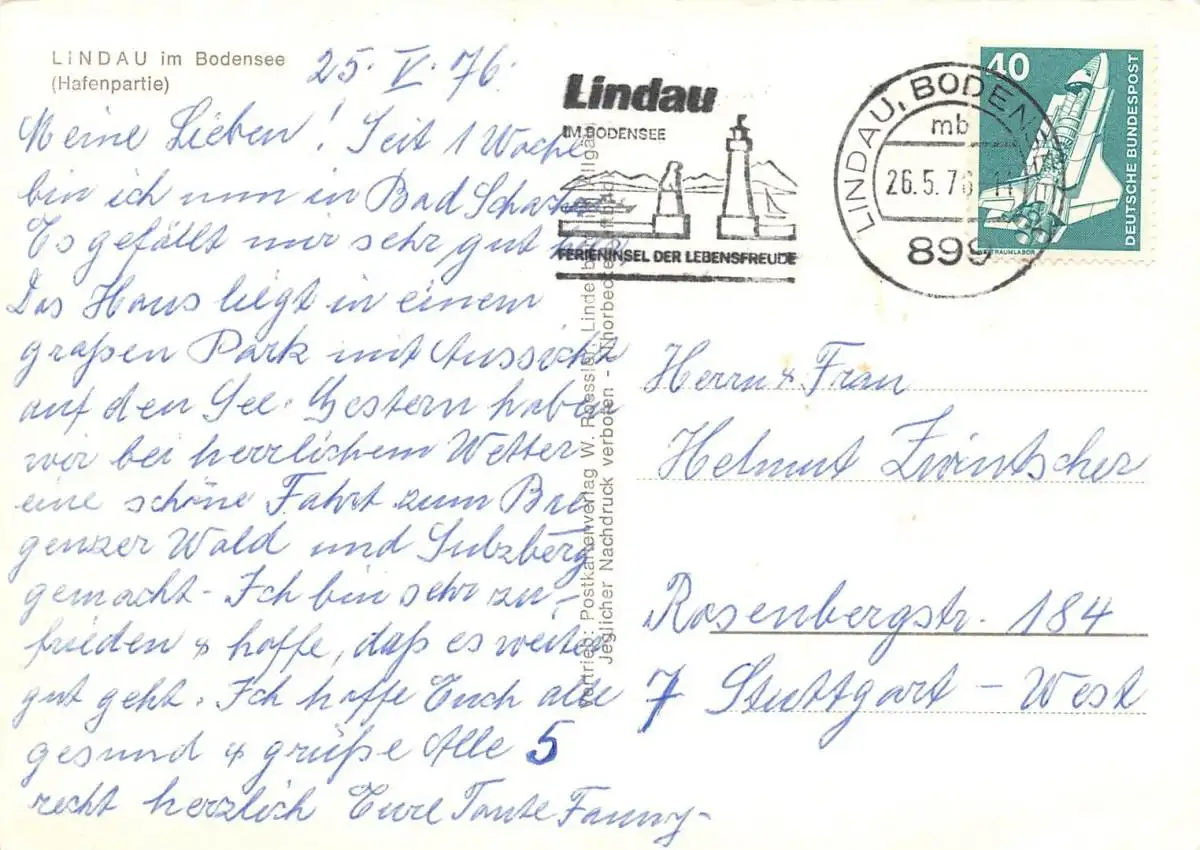 LINDAU im Bodensee
(Hafenpartie)
25. V. 76.
Meine Lieben! Seit 1 Woche
bin ich nun in Bad Schachen
Es gefällt mir sehr gut hier,
Das Haus liegt in einem
großen Park mit Aussicht
auf den See. Gestern haben
wir bei herrlichem Wetter
eine schöne Fahrt zum Bre
genzer Wald und Sulzberg
gemacht - Ich bin sehr zu-
frieden & hoffe, daß es weiter
gut geht. Ich hoffe Euch alle
gesund & grüße Alle 5
recht herzlich Eure Tante Fanny-
Vertrieb: Postkartenverlag W. Roessler, Lindenberg
Jeglicher Nachdruck verboten - Thorbecke
Lindau
IM BODENSEE
FERIENINSEL DER LEBENSFREUDE
LINDAU, BODENSEE
mb
26.5.76 11
899
40
DEUTSCHE BUNDESPOST
Herrn & Frau
Helmut Zwintscher
Rosenbergstr. 184
7 Stuttgart - West